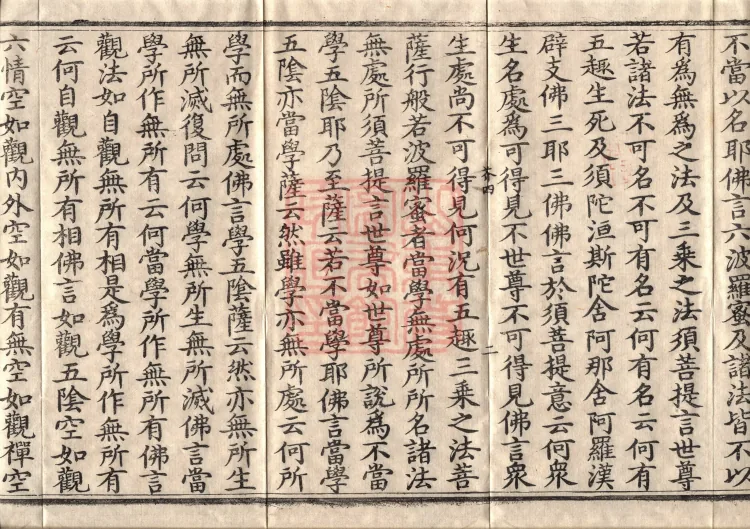 不當以名耶佛言六波羅蜜及諸法皆不以
有為無為之法及三乘之法須菩提言世尊
若諸法不可名不可有名云何有名云何有
五趣生死及須陀洹斯陀舍阿那舍阿羅漢
辟支佛三耶三佛佛言於須菩提意云何眾
生名處為可得見不世尊不可得見佛言眾
生處尚不可得見何況有五趣三乘之法菩
薩行般若波羅蜜者當學無處所所名諸法
無處所須菩提言世尊如世尊所說為不當
學五陰耶乃至薩云若不當學耶佛言當學
五陰亦當學薩云然雖學亦無所處云何所
學而無所處佛言學五陰薩云然亦無所生
無所滅復問云何學無所生無所滅佛言當
學所作無所有云何當學所作無所有佛言
觀法如自觀無所有相是為學所作無所有
云何自觀無所有相佛言如觀五陰空如觀
六情空如觀內外空如觀有無空如觀禪空